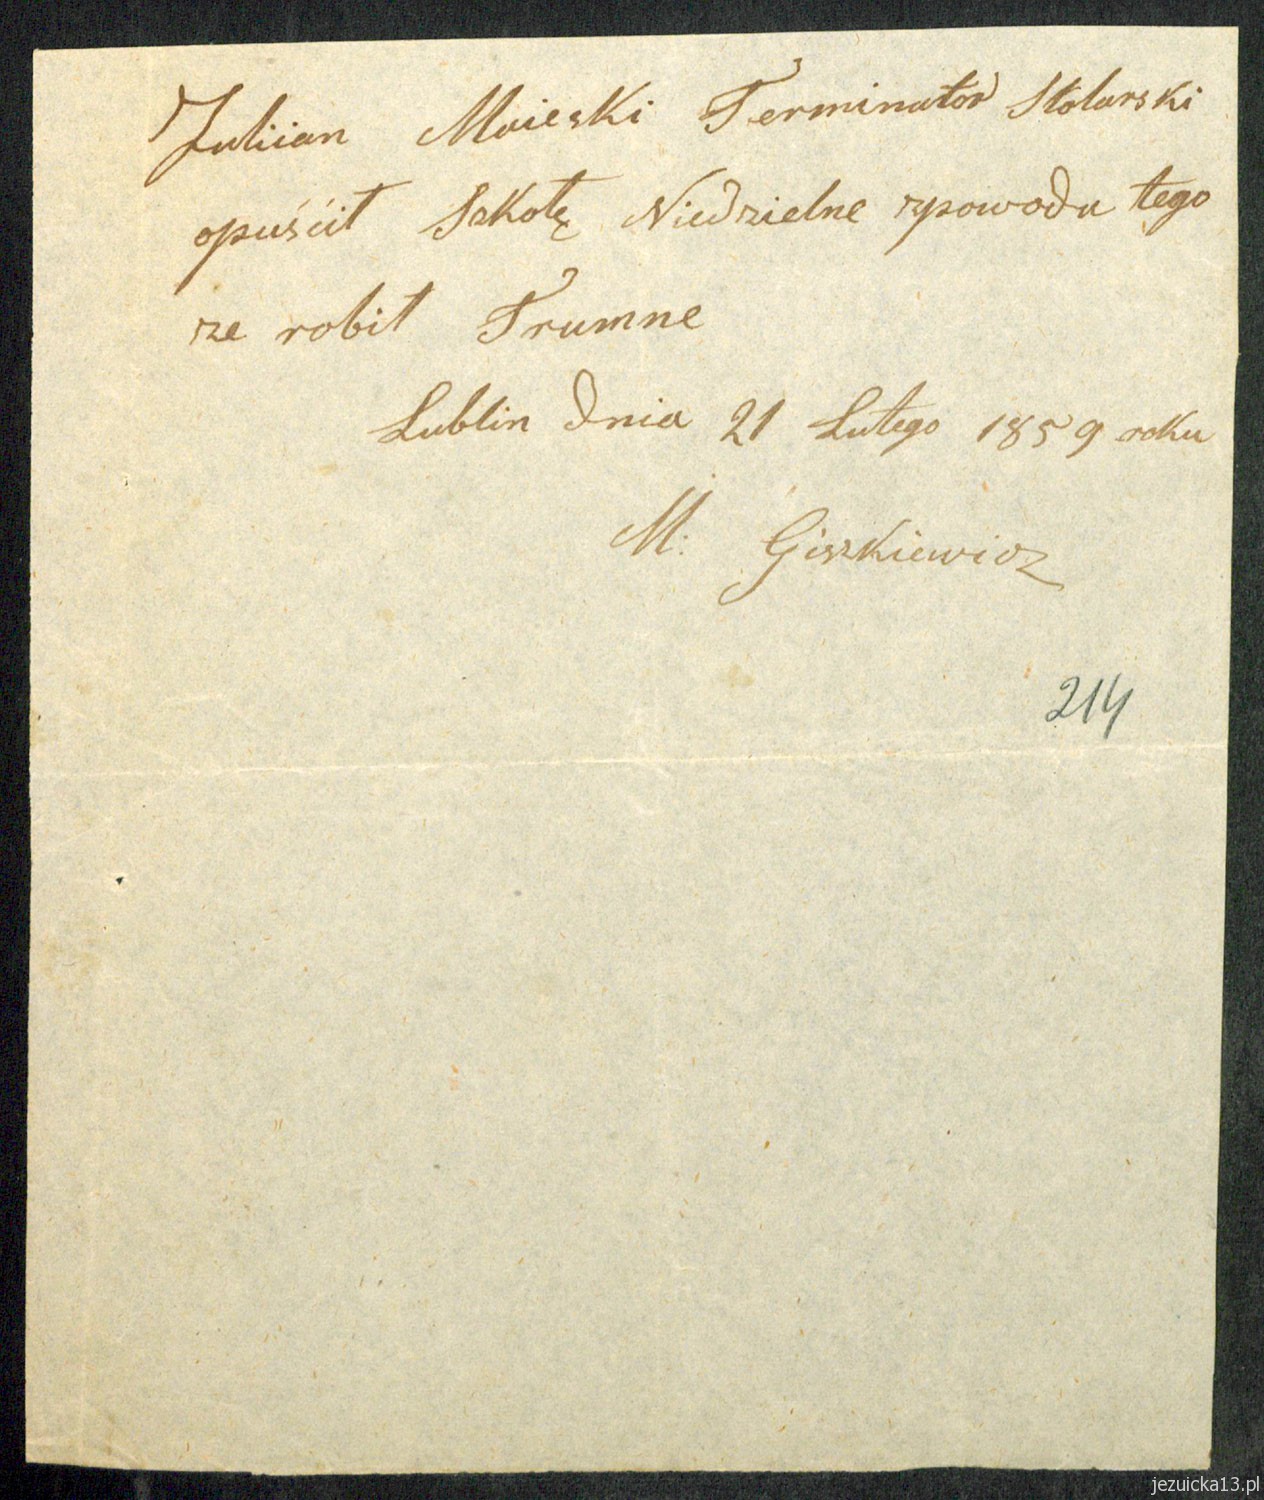 Juliian Maieski Terminator Stolarski
opuścił Szkołę Niedzielne zpowodu tego
ze robił Trumne
Lublin dnia 21 Lutego 1859 roku
M: Giszkiewicz
214
jezuicka13.pl